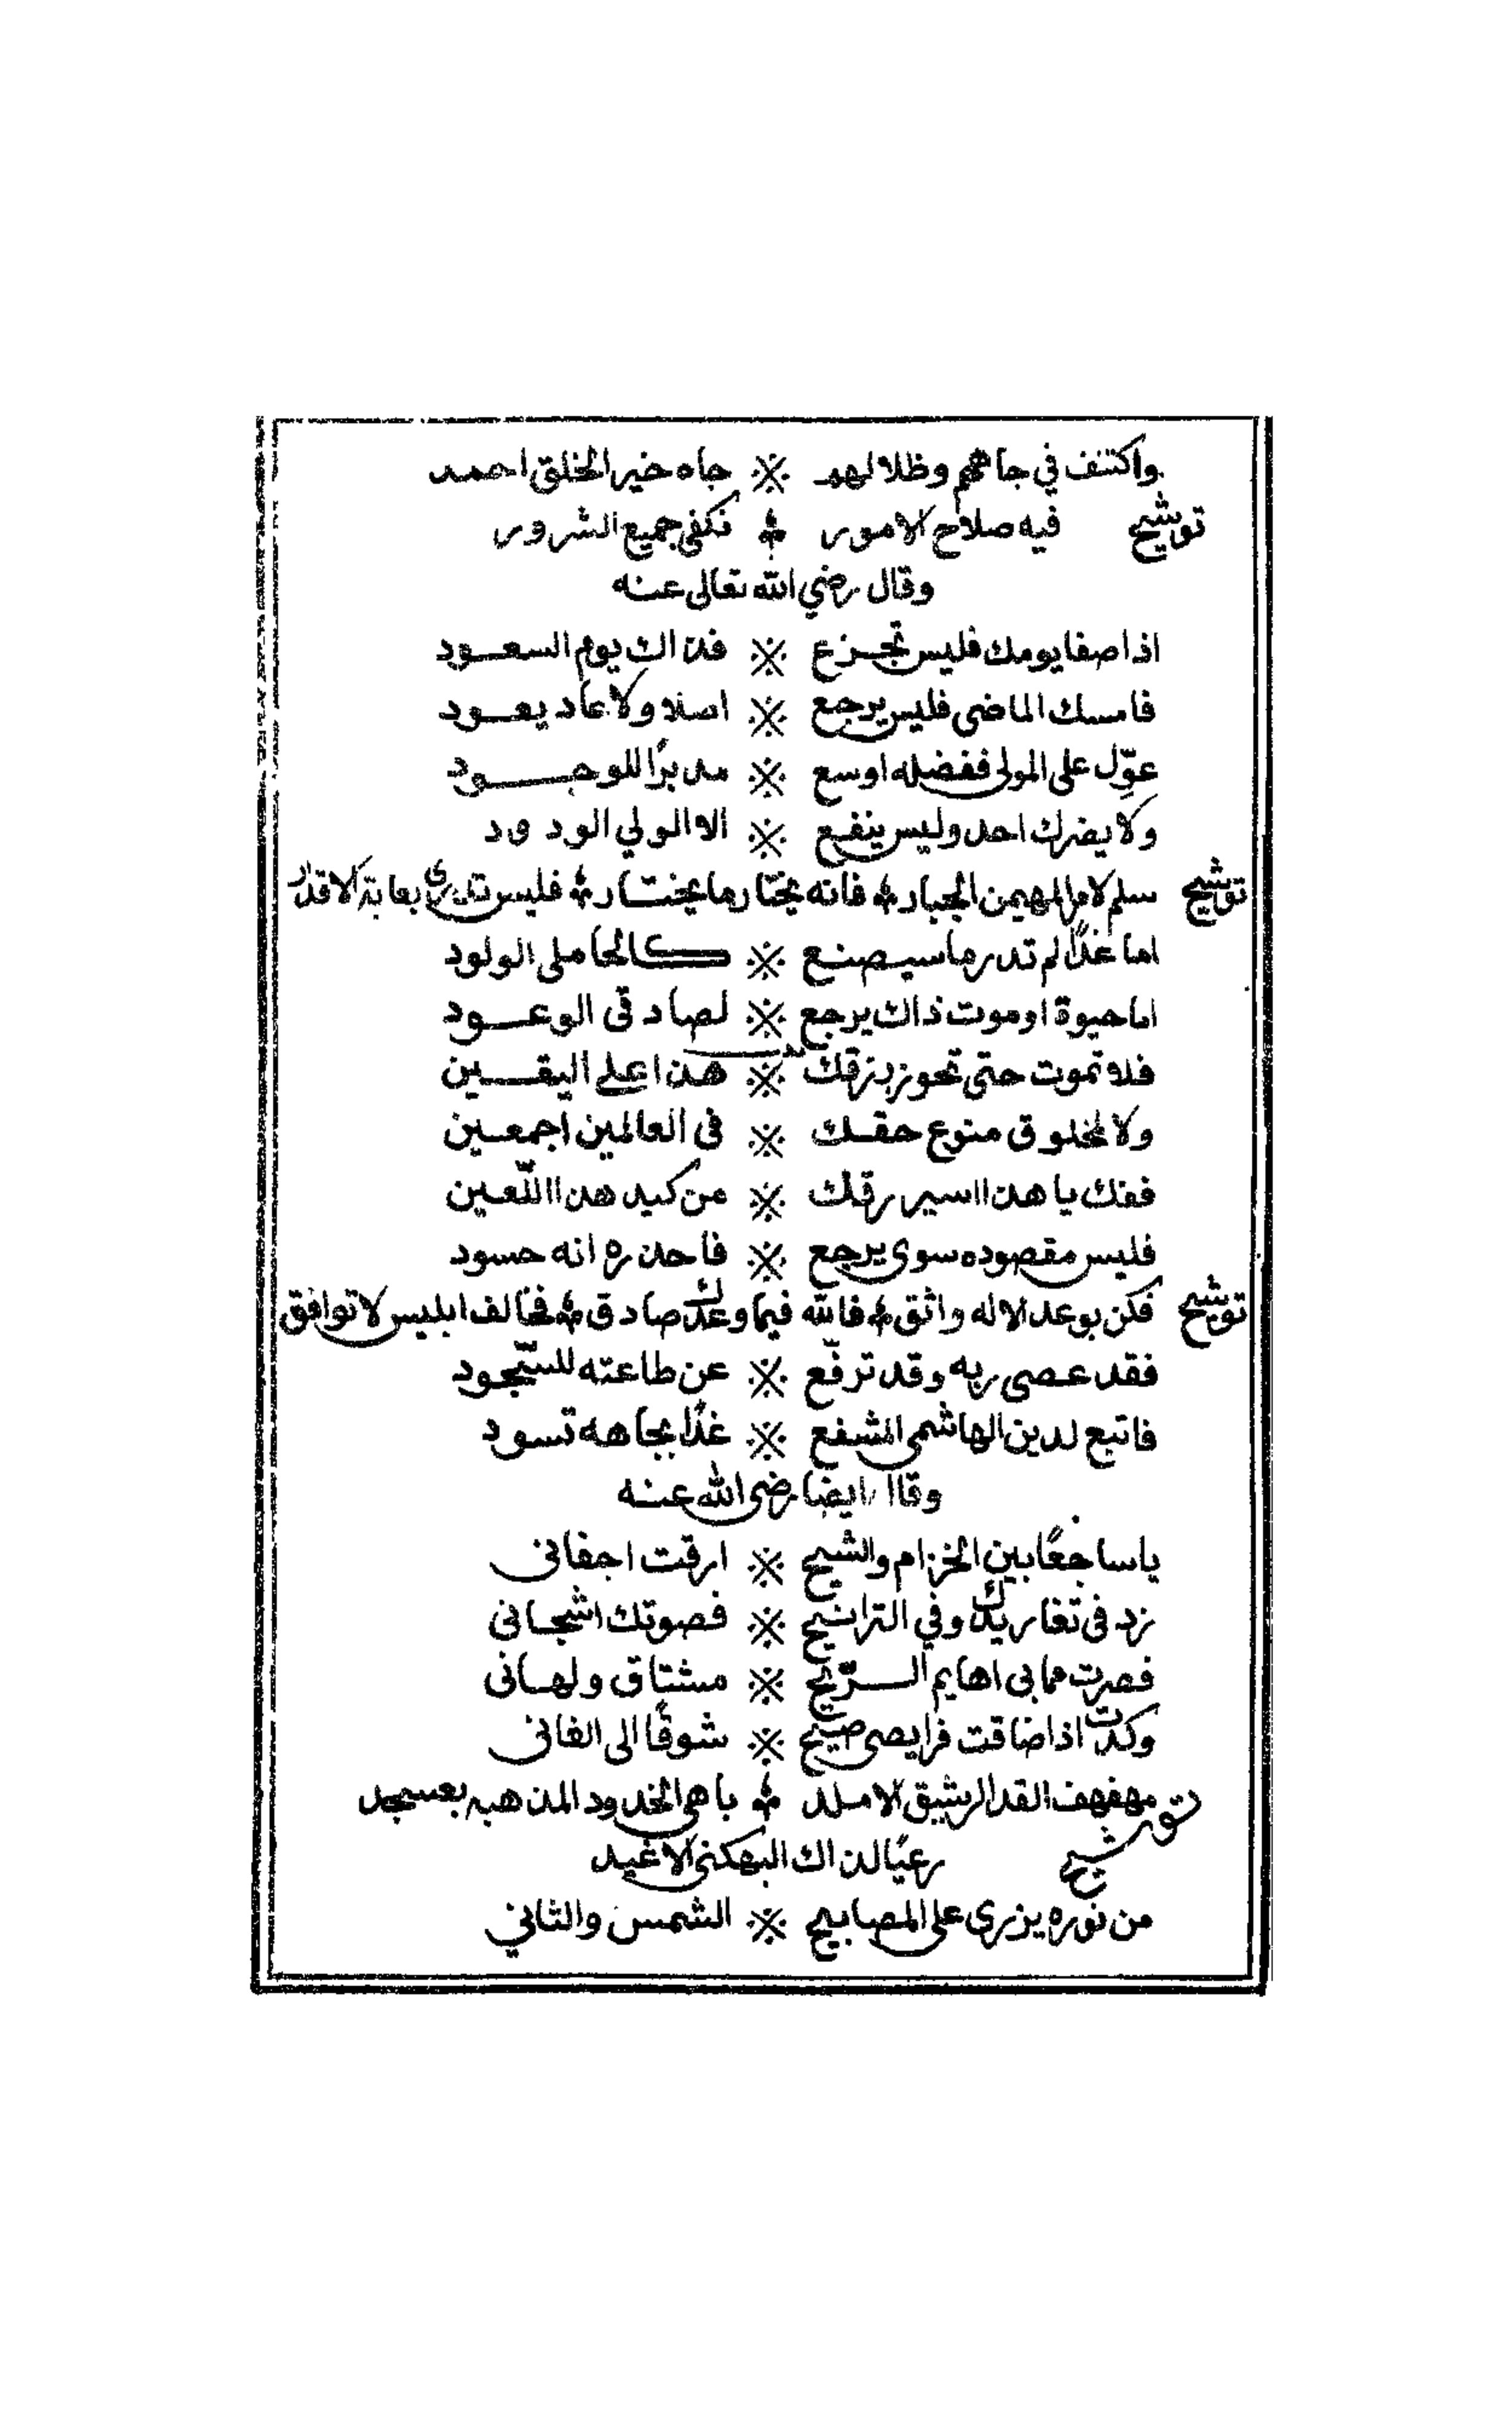 واكتنف في جاههم وظلالهم ※ جاه خير الخلق احمد
توشيح فيه صلاح الامور ※ نكفى جميع الشرور
وقال رضي الله تعالى عنه
اذا صفا يومك فليس تجزع ※ فذاك يوم السعود
فامسك الماضى فليس يرجع ※ اصلا ولا عاد يعود
عوّل على المولى ففضله اوسع ※ مدبرًا للوجود
ولا يضرك احد وليس ينفع ※ الا المولي الودود
توشيح سلم لامر المهيمن الجبار ※ فانه يختار ما يختار ※ فليس تدرى بغابة الاقدار
اما غدًا لم تدر ما سيصنع ※ كالحاملى الولود
اما حيوة او موت ذاك يرجع ※ لصادقى الوعود
فلا تموت حتى تحوز رزقك ※ هذا على اليقين
ولا لمخلوق منوع حقك ※ فى العالمين اجمعين
ففك يا هذا اسير رقك ※ من كيد هذا اللّعين
فليس مقصوده سوى يرجع ※ فاحذره انه حسود
توشيح فكن بوعد الاله واثق ※ فالله فيما وعدك صادق ※ فخالف ابليس لا توافق
فقد عصى ربه وقد ترفّع ※ عن طاعته للسّجود
فاتبع لدين الهاشمى المشفع ※ غدًا بجاهه تسود
وقال ايضا رضى الله عنه
يا ساجعًا بين الخزام والشيح ※ ارقت اجفانى
زد فى تغاريدك وفي الترانيح ※ فصوتك اشجانى
فصرت مما بى اهايم الرّيح ※ مشتاق ولهانى
وكدت اذا ضاقت فرايصى صيح ※ شوقًا الى الغانى
توشيح مهفهف القد الرشيق الاملد ※ باهى الخدود المذهبه بعسجد
رعيًا لذاك البهكنى الاغيد
من نوره يزرى على المصابيح ※ الشمس والثاني